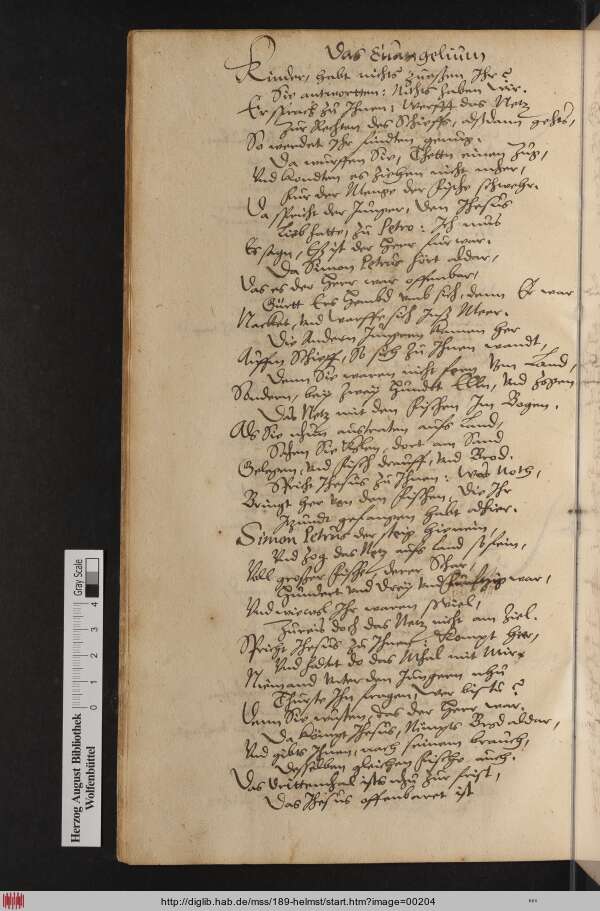 Das Euangelium
Kinder, habt nichts zuessen Ihr?
Sie antwortten: Nichts haben wir.
Er sprach zu Ihnen: Werfft das Netz
Zur Rechten des Schieffs, alsdann gehets,
So werdet Ihr finden genug.
Da wurffen Sie, Thetten einen Zug,
Vnd kondten es ziehen nicht mher,
Für der Menge der Fische schwehr.
Da spricht der Junger, den Jhesus
Lieb hatte, zu Petro: Ich mus
Es sagn, Es ist der Herr fur war.
Da Simon Petrus hört aldar,
Das es der Herr war offenbar,
Gürtt Ers Hembd vmb sich, denn Er war
Nacket, vnd warffe sich Ins Meer.
Die Andern Jungern kamen her
Auffm Schieff, So sich zu Ihnen wandt,
Denn Sie waren nicht fern vom Land,
Sondern, bey Zwey Hundert Elln, vnd zogen
Das Netz mit den Fischen Im Bogen.
Als Sie nhun austraten aufs Land,
Sehen Sie Kolen, dort am Sand
Gelegen, vnd Fisch drauff, vnd Brod.
Spricht Jhesus zu Ihnen: Was Noth,
Bringt her von den Fischen, Die Ihr
Itzundt gefangen habt alhier.
Simon Petrus der steig hienein,
Vnd zog das Netz aufs land
Voll grosser Fische, derer Schar,
Hundert vnd Drey vnd Funfftzig war,
Vnd wiewol Ihr waren so viel,
Zureis doch das Netz nicht am Ziel.
Spricht Jhesus zu Ihnen: Kompt her,
Vnd haltet do das Mhal mit Mir.
Niemand vnter den Jungern
Thurste Ihn fragen, wer bistu?
Denn Sie wusten, das der Herr war.
Da kömpt Jhesus, Nimpts Brod aldar,
Vnd gibts Ihnen, nach seinem brauch,
Desselben gleichen Fische auch.
Das dritte mhal ists nhu zur frist,
Das Jhesus offenbaret ist
Herzog August Bibliothek
Wolfenbüttel
Gray Scale
0 1 2 3 4
http://diglib.hab.de/mss/189-helmst/start.htm?image=00204